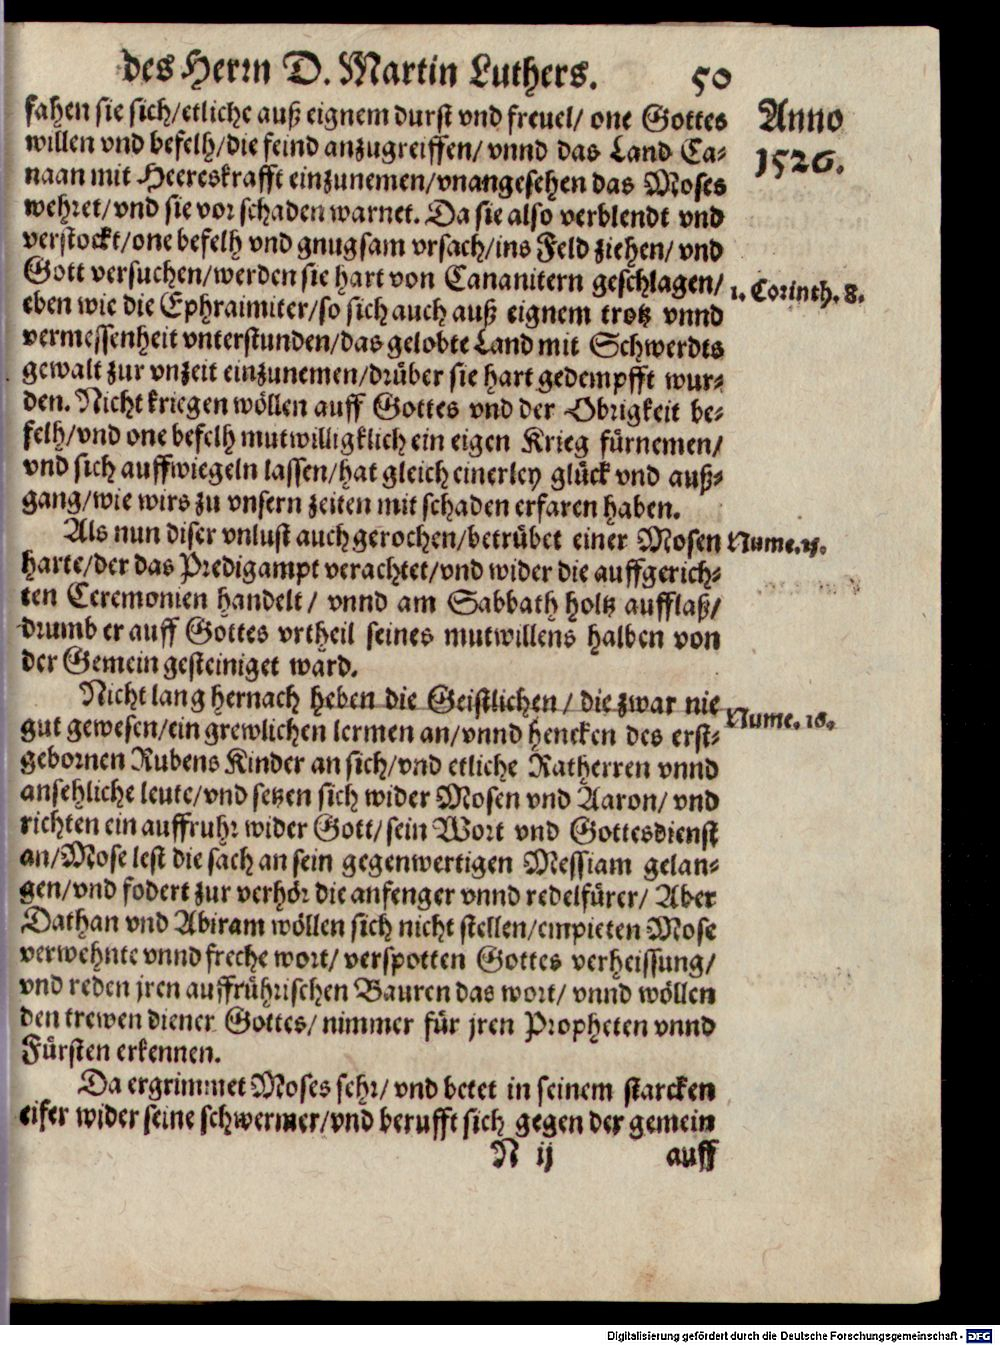 des Herrn D. Martin Luthers. 50
fahen sie sich/etliche auß eignem durst vnd freuel/ one Gottes
willen vnd befelh/die feind anzugreiffen/ vnnd das Land Ca-
naan mit Heereskrafft einzunemen/vnangesehen das Moses
wehret/vnd sie vor schaden warnet. Da sie also verblendt vnd
verstockt/one befelh vnd gnugsam vrsach/ins Feld ziehen/ vnd
Gott versuchen/werden sie hart von Cananitern geschlagen/
eben wie die Ephraimiter/so sich auch auß eignem trotz vnnd
vermessenheit vnterstunden/das gelobte Land mit Schwerdts
gewalt zur vnzeit einzunemen/drüber sie hart gedempfft wur-
den. Nicht kriegen wöllen auff Gottes vnd der Obrigkeit be-
felh/vnd one befelh mutwilligklich ein eigen Krieg fürnemen/
vnd sich auffwiegeln lassen/hat gleich einerley glück vnd auß-
gang/wie wirs zu vnsern zeiten mit schaden erfaren haben.
Als nun diser vnlust auch gerochen/betrübet einer Mosen
harte/der das Predigampt verachtet/vnd wider die auffgerich-
ten Ceremonien handelt/ vnnd am Sabbath holtz aufflaß/
drumb er auff Gottes vrtheil seines mutwillens halben von
der Gemein gesteiniget ward.
Nicht lang hernach heben die Geistlichen/ die zwar nie
gut gewesen/ein grewlichen lermen an/vnnd hencken des erst-
gebornen Rubens Kinder an sich/vnd etliche Ratherren vnnd
ansehliche leute/vnd setzen sich wider Mosen vnd Aaron/ vnd
richten ein auffruhr wider Gott/sein Wort vnd Gottesdienst
an/Mose lest die sach an sein gegenwertigen Messiam gelan-
gen/vnd fodert zur verhör die anfenger vnnd redelfürer/ Aber
Dathan vnd Abiram wöllen sich nicht stellen/empieten Mose
verwehnte vnnd freche wort/ verspotten Gottes verheissung/
vnd reden jren auffrührischen Bauren das wort/ vnnd wöllen
den trewen diener Gottes/ nimmer für jren Propheten vnnd
Fürsten erkennen.
Da ergrimmet Moses sehr/ vnd betet in seinem starcken
eifer wider seine schwermer/vnd berufft sich gegen der gemein
N ij auff
Anno
1526.
1. Corinth. 8.
Nume. 15.
Nume. 16.
Digitalisierung gefördert durch die Deutsche Forschungsgemeinschaft - DFG